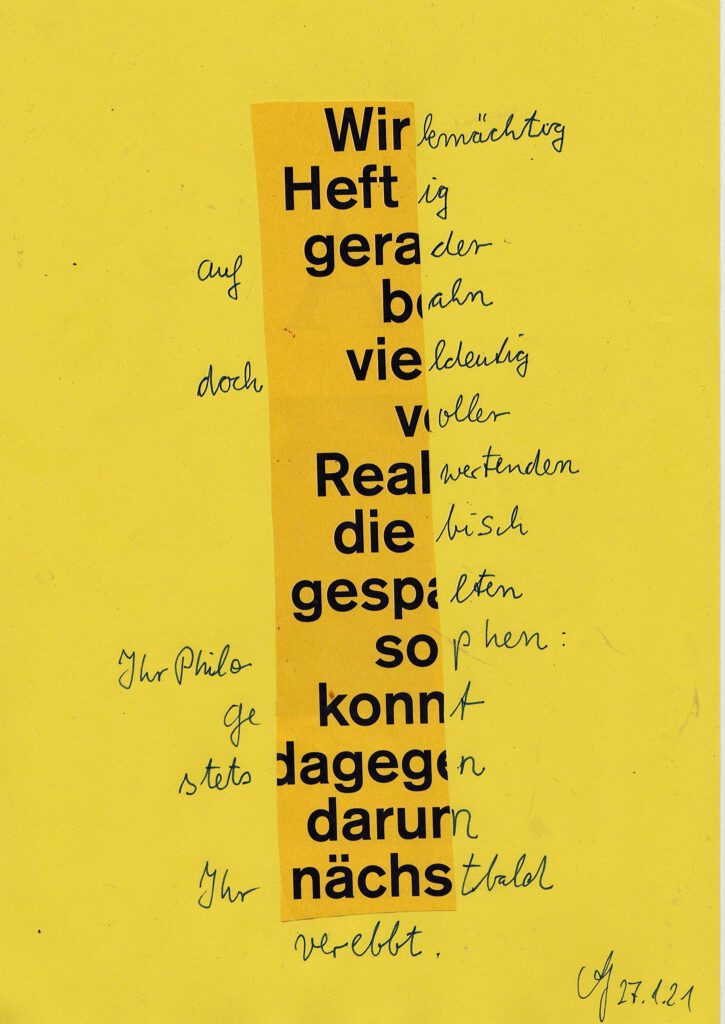 Wirkmächtig
Heftig
auf gerader
bahn
doch vieldeutig
voller
Realwertenden
diebisch
gespalten
Ihr Philosophen:
gekonnt
stets dagegen
darum
Ihr nächstbald
verebbt.
27.1.21